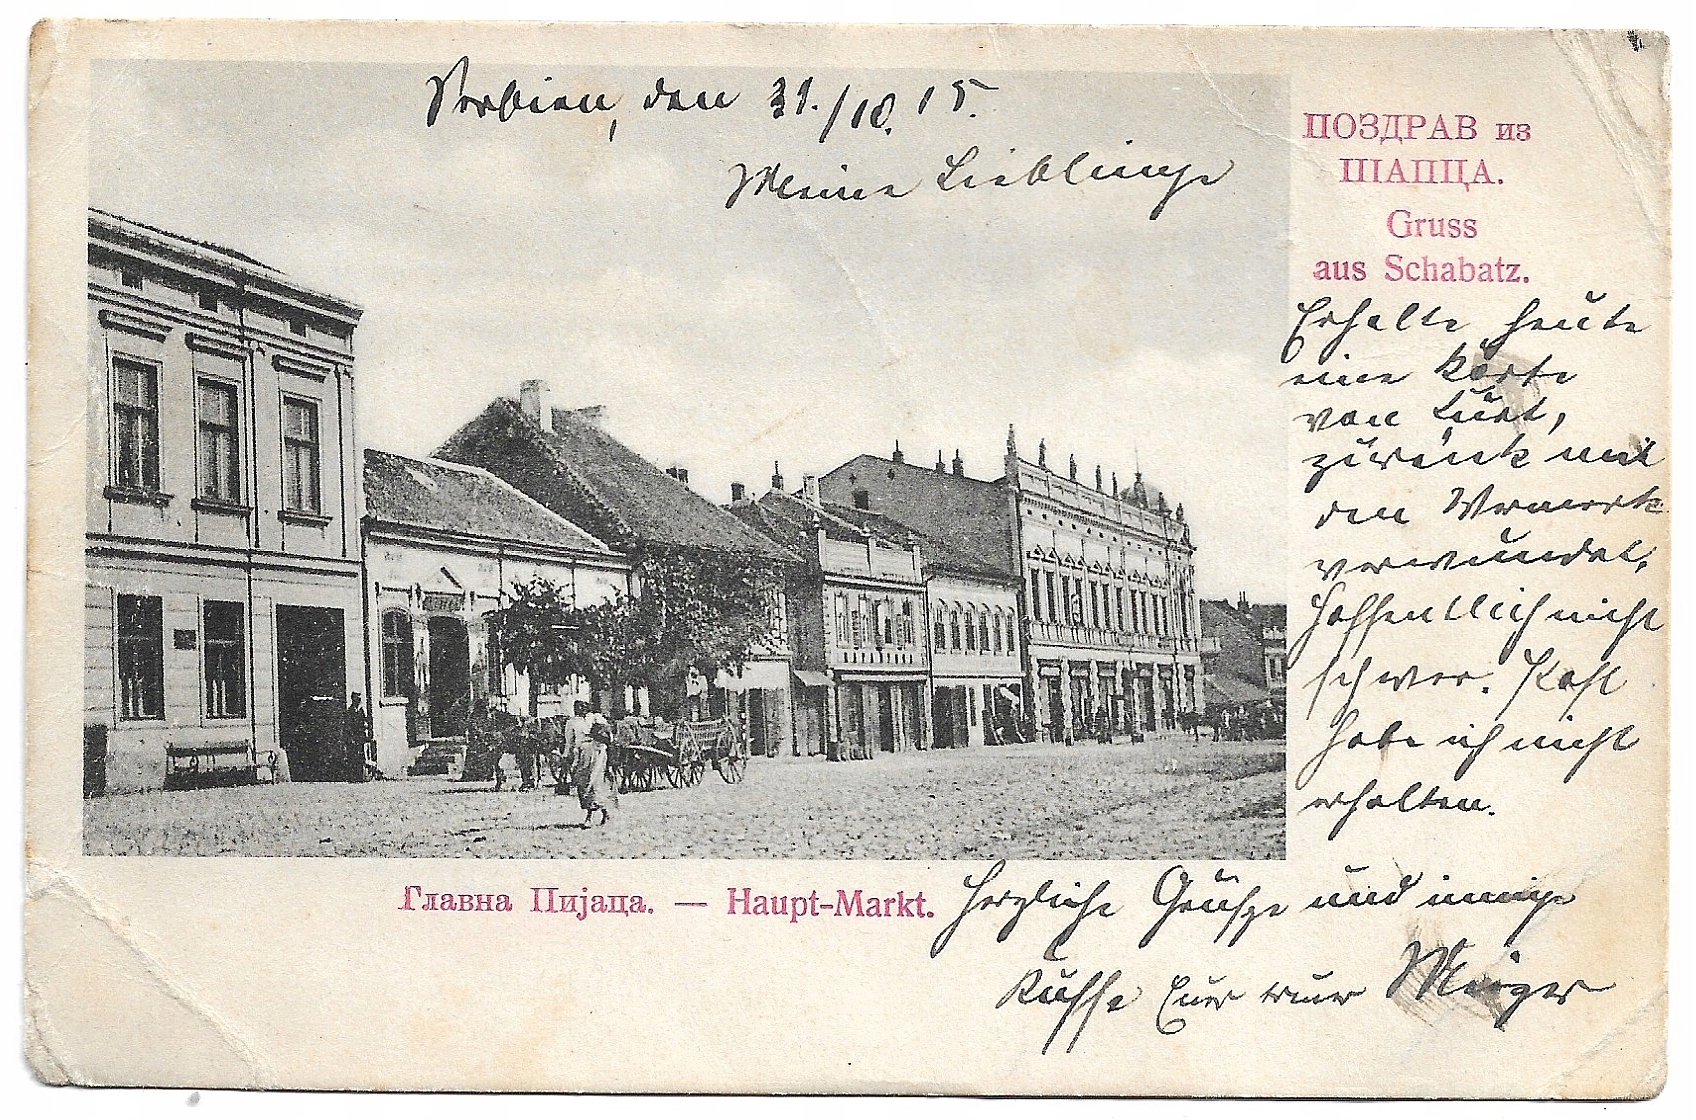 Serbien, den 31./10.15.
Meine Lieblinge
ПОЗДРАВ из
ШАПЦА.
Gruss
aus Schabatz.
Erhalte heute
eine Karte
von Kurt,
zurück mit
den Vermerk
verwundet,
hoffentlich nicht
schwer. Post
habe ich nicht
erhalten.
Главна Пијаца. — Haupt-Markt.
Herzliche Grüße und innige
Küsse Euer